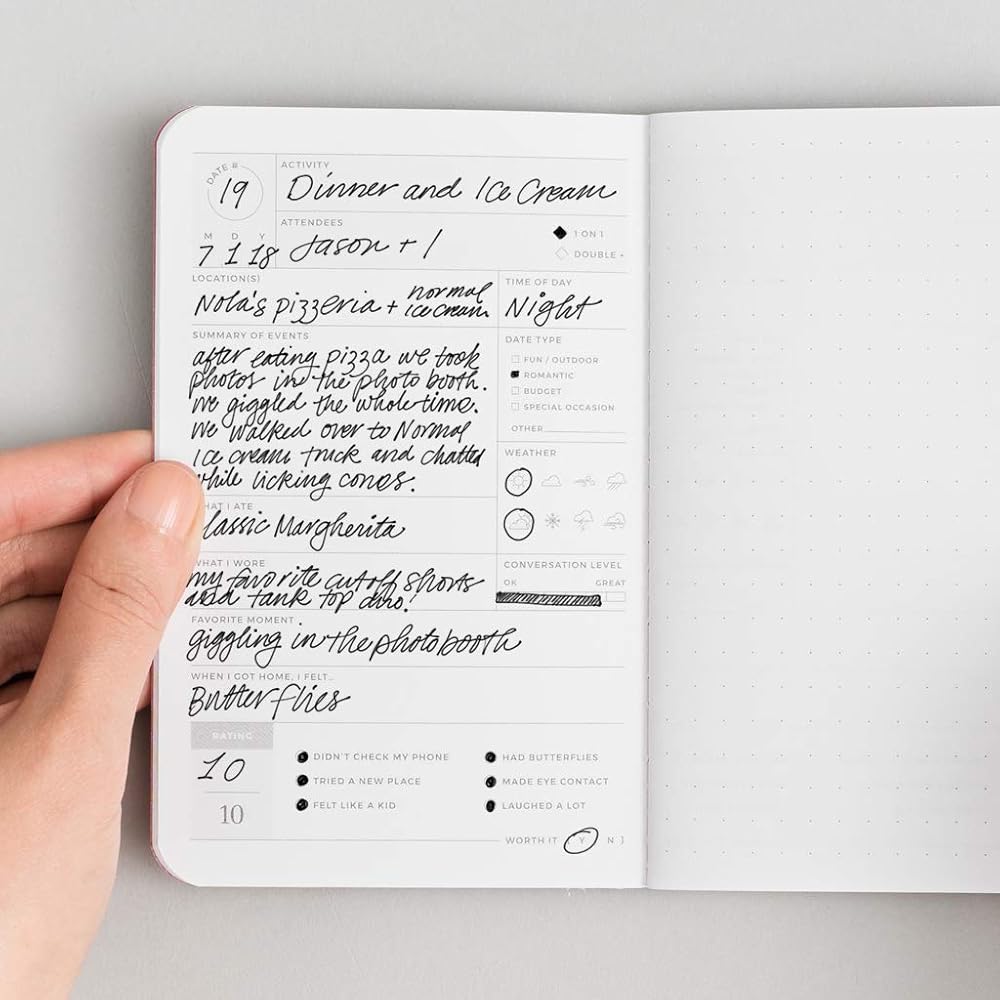 DATE #
19
ACTIVITY
Dinner and Ice Cream
M D Y
7 1 18
ATTENDEES
Jason + I
1 ON 1
DOUBLE +
LOCATION(S)
Nola's pizzeria + normal
ice cream
TIME OF DAY
Night
SUMMARY OF EVENTS
after eating pizza we took
photos in the photo booth.
we giggled the whole time.
we walked over to Normal
Ice cream truck and chatted
while licking cones.
DATE TYPE
FUN / OUTDOOR
ROMANTIC
BUDGET
SPECIAL OCCASION
OTHER
WEATHER
HAT I ATE
lassic Margherita
WHAT I WORE
my favorite cutoff shorts
and tank top duo!
CONVERSATION LEVEL
OK GREAT
FAVORITE MOMENT
giggling in the photobooth
WHEN I GOT HOME, I FELT...
Butterflies
RATING
10
10
DIDN'T CHECK MY PHONE
TRIED A NEW PLACE
FELT LIKE A KID
HAD BUTTERFLIES
MADE EYE CONTACT
LAUGHED A LOT
WORTH IT ( Y N )